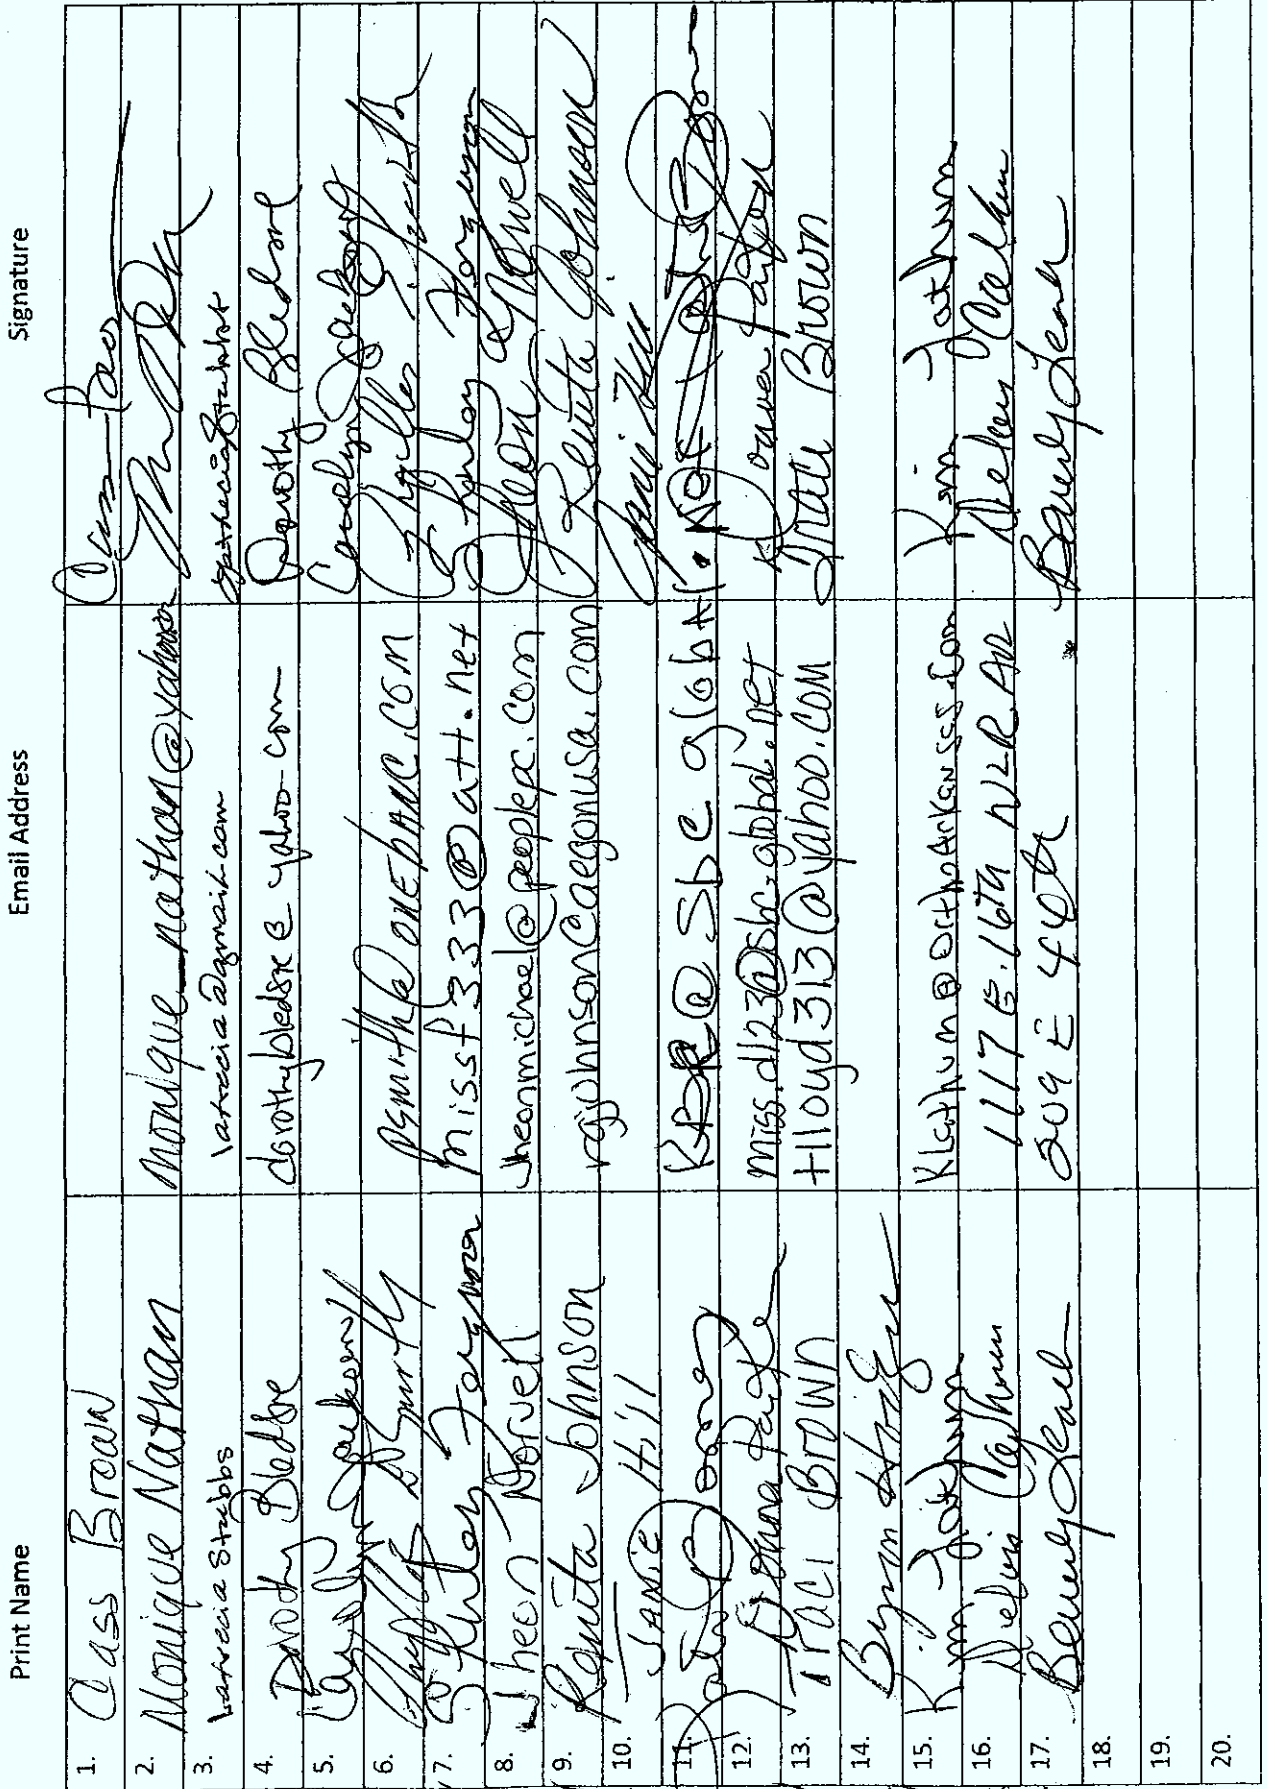 Print Name Email Address Signature
1. Cass Brown
2. Monique Nathan monique_nathan@yahoo
3. Latrecia Stubbs Latrecia Stubbs
4. Dorothy Bledsoe dorothybledsoe@yahoo.com Dorothy Bledsoe
5. Carolyn Jackson Carolyn Jackson
6. Phyllis Smith psmith@onebanc.com Phyllis Smith
7. Shirley Ferguson missf333@att.net Shirley Ferguson
8. Jheon Norvell jheonmichael@peoplepc.com Jheon Norvell
9. Renita Johnson rgjohnson@aegonusa.com Renita Johnson
10. Janie Hill Janie Hill
11. @Sbcglobal.Net
12. Donna Parker miss.d123@sbc.global.net Donna Parker
13. Traci Brown tlloyd313@yahoo.com Traci Brown
14. Byron
15. Kim Tatum @OrthoArkansas.com Kim Tatum
16. 1117 E. 16th NLR. AR
17. Beverly 209 E 44th Beverly
18.
19.
20.